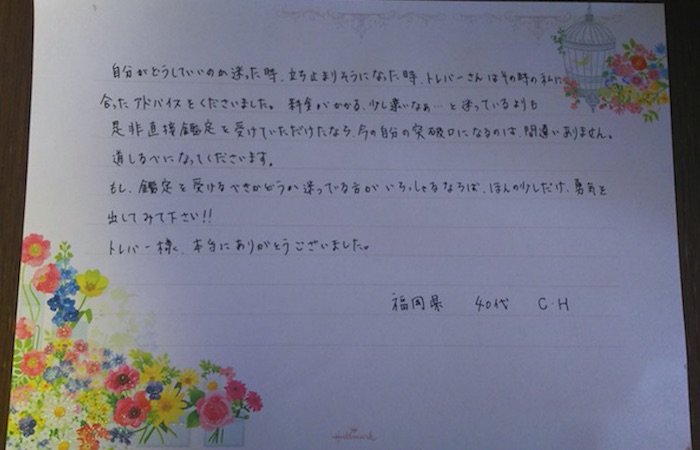 自分がどうしていいのか迷った時、立ち止まりそうになった時、トレバーさんはその時の私に
合ったアドバイスをくださいました。料金がかかる、少し遠いなぁ…と迷っているよりも
是非直接鑑定を受けていただけたなら、今の自分の突破口になるのは、間違いありません。
道しるべになってくださいます。
もし、鑑定を受けるべきかどうか迷っている方がいらっしゃるならば、ほんの少しだけ、勇気を
出してみて下さい!!
トレバー様、本当にありがとうございました。
福岡県 40代 C・H
Hallmark